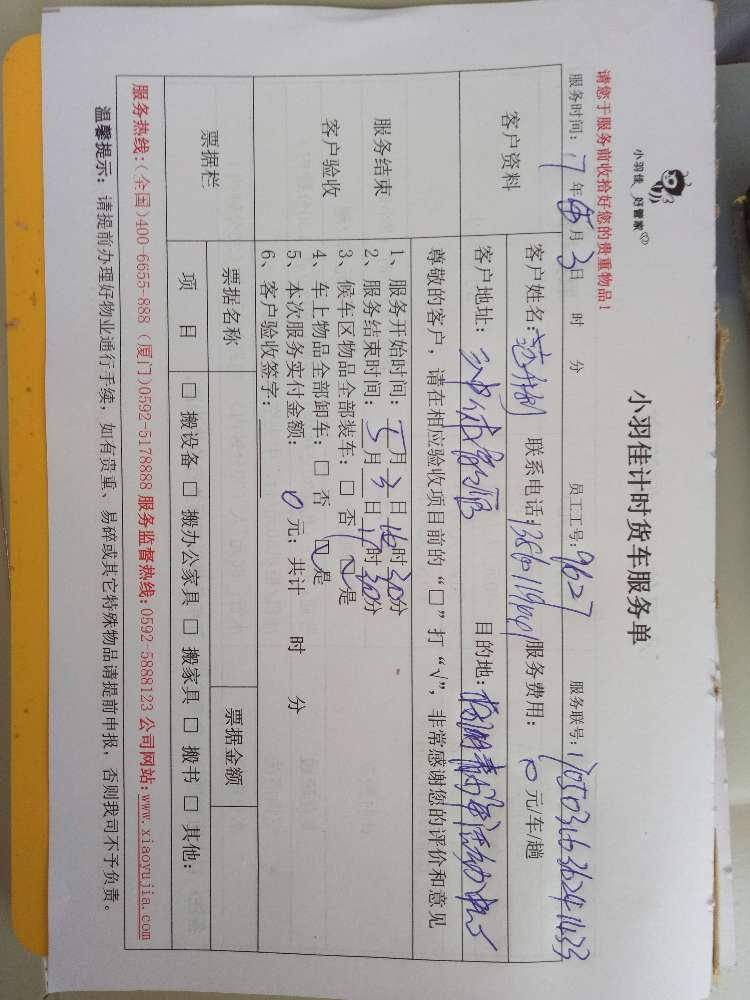 小羽佳 好管家
小羽佳计时货车服务单
请您于服务前收拾好您的贵重物品！
服务时间：17年5月3日 时 分 员工工号：9627 服务联号：
客户资料
客户姓名： 联系电话： 服务费用：0元/车/趟
客户地址： 目的地：
尊敬的客户，请在相应验收项目前的“□”打“√”，非常感谢您的评价和意见
服务结束
客户验收
1、服务开始时间：5月3日16时30分
2、服务结束时间：5月3日17时30分
3、候车区物品全部装车：□ 否 ☑是
4、车上物品全部卸车：□ 否 ☑是
5、本次服务实付金额：0元；共计 时 分
6、客户验收签字：
票据栏
票据名称 票据金额
项 目 □ 搬设备 □ 搬办公家具 □ 搬家具 □ 搬书 □ 其他：
服务热线：(全国)400-6655-888 (厦门)0592-5178888 服务监督热线：0592-5888123 公司网站：www.xiaoyujia.com
温馨提示：请提前办理好物业通行手续，如有贵重、易碎或其它特殊物品请提前申报，否则我司不予负责。